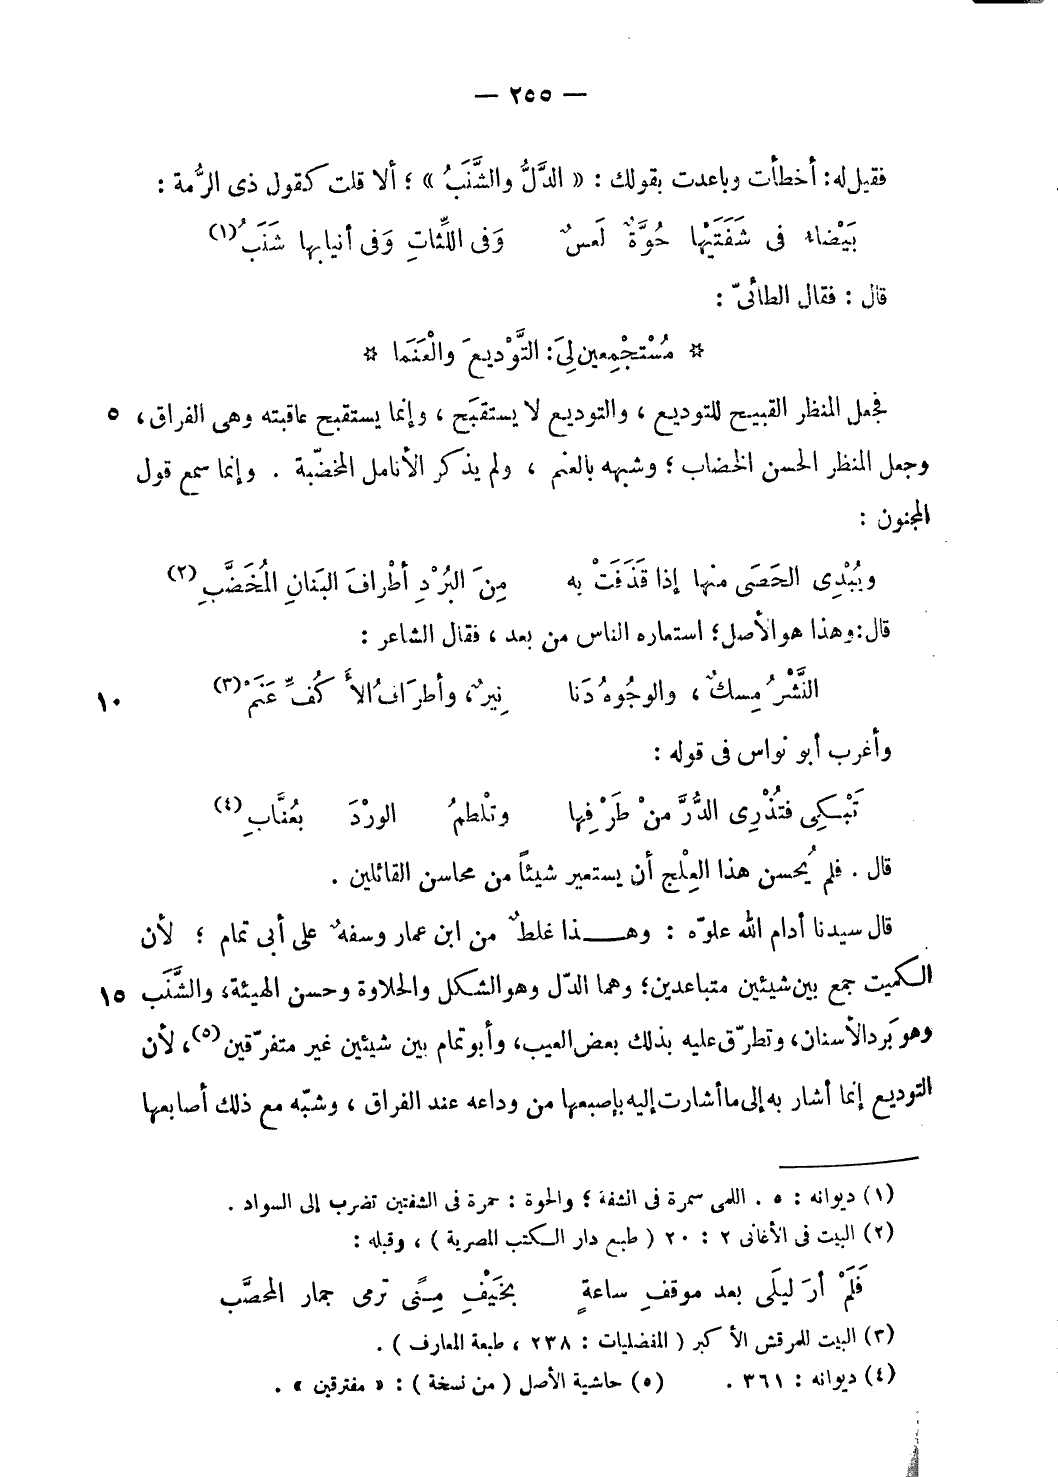 — ٢٥٥ —
فقيل له: أخطأت وباعدت بقولك : « الدَّلُّ والشَّنَبُ » ؛ ألا قلت كقول ذى الرُّمة :
بَيْضاء فى شَفَتَيْها حُوَّةٌ لَعسٌ وَفى اللِّثاتِ وَفى أنيابِها شَنَبُ (١)
قال : فقال الطائىّ :
* مُسْتجْمِعين لِىَ: التَّوْديعَ والْعَنَما *
فجعل المنظر القبيح للتوديع ، والتوديع لا يستقبَح ، وإنما يستقبح عاقبته وهى الفراق، ٥
وجعل المنظر الحسن الخضاب ؛ وشبهه بالعنم ، ولم يذكر الأنامل المخضّبة . وإنما سمع قول
المجنون :
ويُبْدِى الحَصَى منها إذا قَذَفَتْ به مِنَ البُرْدِ أطْرافَ البَنانِ المُخَضَّبِ (٢)
قال: وهذا هو الأصل؛ استعاره الناس من بعد ، فقال الشاعر :
النَّشْرُ مِسكٌ ، والوجُوهُ دَنا نِيرٌ، وأطرَافُ الأَكُفِّ عَنَمْ (٣) ١٠
وأغرب أبو نواس فى قوله :
تَبْكِى فتُذْرِى الدُّرَّ منْ طَرْفِها وتلْطمُ الورْدَ بعُنَّابِ (٤)
قال . فلم يُحسن هذا العِلْج أن يستعير شيئاً من محاسن القائلين .
قال سيدنا أدام الله علوّه : وهـــذا غلطٌ من ابن عمار وسفهٌ على أبى تمام ؛ لأن
الكميت جمع بين شيئين متباعدين؛ وهما الدّل وهو الشكل والحلاوة وحسن الهيئة، والشَّنَب ١٥
وهو بَرد الأسنان، وتطرّق عليه بذلك بعض العيب، وأبو تمام بين شيئين غير متفرّقين (٥)، لأن
التوديع إنما أشار به إلى ما أشارت إليه بإصبعها من وداعه عند الفراق ، وشبّه مع ذلك أصابعها
(١) ديوانه : ٥ . اللمى سمرة فى الشفة ؛ والحوة : حمرة فى الشفتين تضرب إلى السواد .
(٢) البيت فى الأغانى ٢ : ٢٠ ( طبع دار الكتب المصرية ) ، وقبله :
فَلَمْ أرَ ليلَى بعد موقفِ ساعةٍ بخَيْفِ مِنًى ترمى جمار المحصَّب
(٣) البيت للمرقش الأكبر ( المفضليات : ٢٣٨ ، طبعة المعارف ) .
(٤) ديوانه : ٣٦١ . (٥) حاشية الأصل ( من نسخة ) : « مفترقين » .